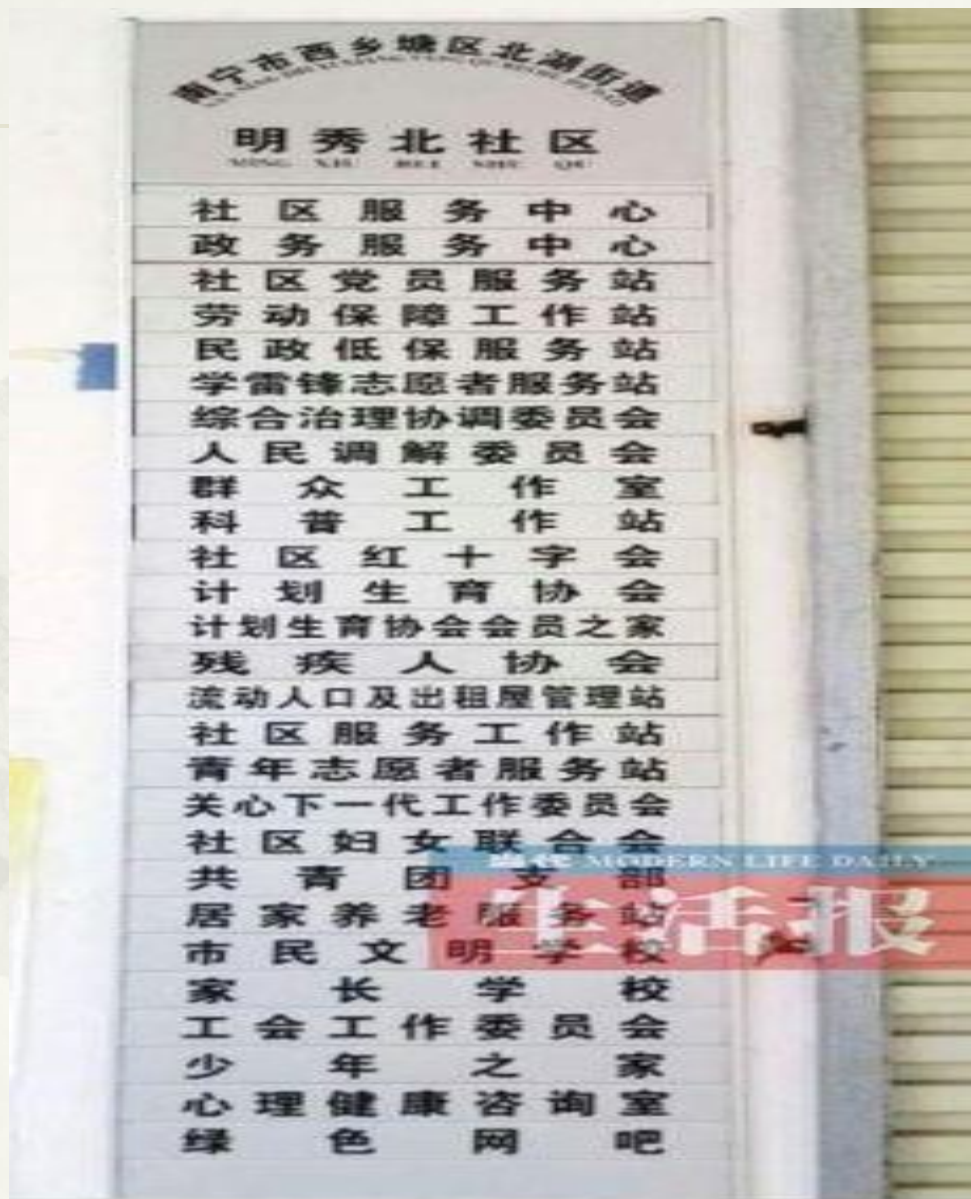 南宁市西乡塘区北湖街道
明秀北社区
MING XIU BEI SHE QU
社区服务中心
政务服务中心
社区党员服务站
劳动保障工作站
民政低保服务站
学雷锋志愿者服务站
综合治理协调委员会
人民调解委员会
群众工作室
科普工作站
社区红十字会
计划生育协会
计划生育协会会员之家
残疾人协会
流动人口及出租屋管理站
社区服务工作站
青年志愿者服务站
关心下一代工作委员会
社区妇女联合会
当代 MODERN LIFE DAILY
共青团支部
居家养老服务站
生活报
市民文明学校
家长学校
工会工作委员会
少年之家
心理健康咨询室
绿色网吧